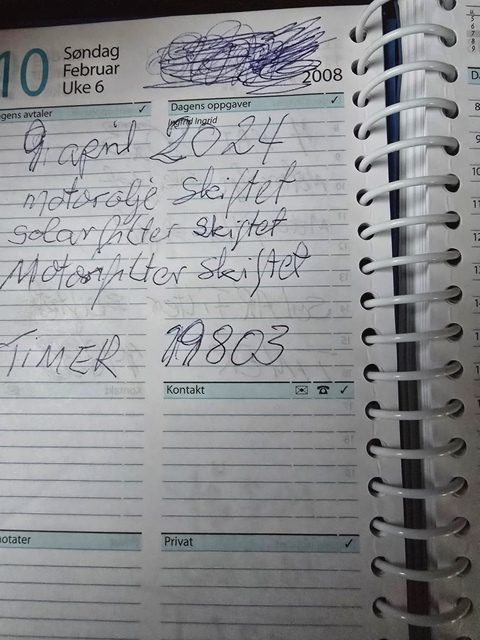 10
Søndag
Februar
Uke 6
2008
gens avtaler ✓
Dagens oppgaver ✓
Ingrid Ingrid
9 april 2024
motorolje skiftet
solarfilter skiftet
Motorfilter skiftet
TIMER 19803
Kontakt ✓
otater
Privat ✓